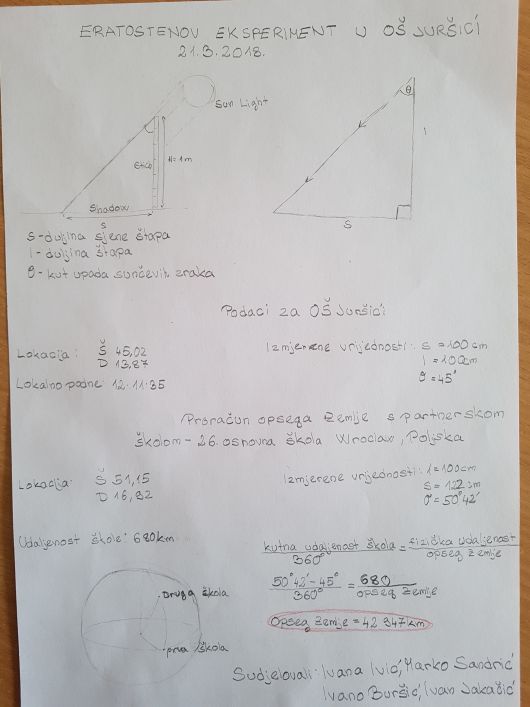 ERATOSTENOV EKSPERIMENT U OŠ JURŠIĆI
21.3.2018.
Sun Light
θ
Stick
H=1m
l
Shadow
s
s
s-duljina sjene štapa
l-duljina štapa
θ-kut upada sunčevih zraka
Podaci za OŠ Juršići
Lokacija: Š 45,02
D 13,87
Lokalno podne: 12:11:35
Izmjerene vrijednosti: s=100cm
l=100cm
θ=45°
Proračun opsega Zemlje s partnerskom
školom-26.osnovna škola Wroclaw, Poljska
Lokacija: Š 51,15
D 16,82
Izmjerene vrijednosti: l=100cm
s=122cm
θ=50°42'
Udaljenost škole: 680km
kutna udaljenost škola = fizička udaljenost
360° opseg zemlje
50°42'-45° = 680
360° opseg zemlje
Opseg zemlje = 42 947km
Druga škola
prva škola
Sudjelovali: Ivana Ivić, Marko Sandrić
Ivano Buršić, Ivan Jakačić